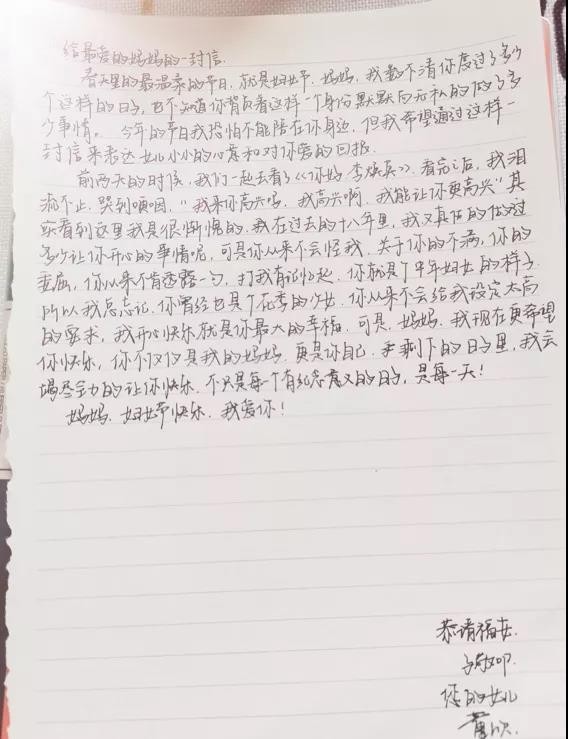 给最爱的妈妈的一封信.
春天里的最温柔的节日,就是妇女节.妈妈,我数不清你度过了多少
个这样的日子,也不知道你背负着这样一个身份默默向无私的做了多
少事情。今年的节日我恐怕不能陪在你身边,但我希望通过这样一
封信来表达女儿小小的心意和对你爱的回报.
前两天的时候,我们一起去看了《你好,李焕英》.看完之后,我泪
流不止,哭到哽咽."我来你高兴吗,我高兴啊,我能让你更高兴"其
实看到这里我是很惭愧的.我在过去的十八年里,我又真的做过
多少让你开心的事情呢,可是你从来不会怪我.关于你的不满,你的
委屈,你从来不肯透露一句,打我有记忆起.你就是个中年妇女的样子.
所以我总忘记,你曾经也是个花季的少女.你从来不会给我设定太高
的要求,我开心快乐就是你最大的幸福.可是,妈妈.我现在更希望
你快乐,你不仅仅是我的妈妈.更是你自己.在剩下的日子里,我会
竭尽全力的让你快乐.不只是每个有纪念意义的日子,是每一天!
妈妈.妇女节快乐.我爱你!
恭请福安.
敬叩.
您的女儿